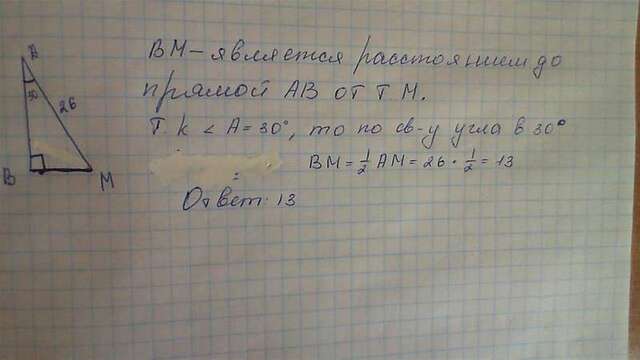 BM – является расстоянием до
прямой AB от т M.
Т.к < A = 30°, то по св-у угла в 30°
26
BM = ½ AM = 26 · ½ = 13
B
M
Ответ: 13